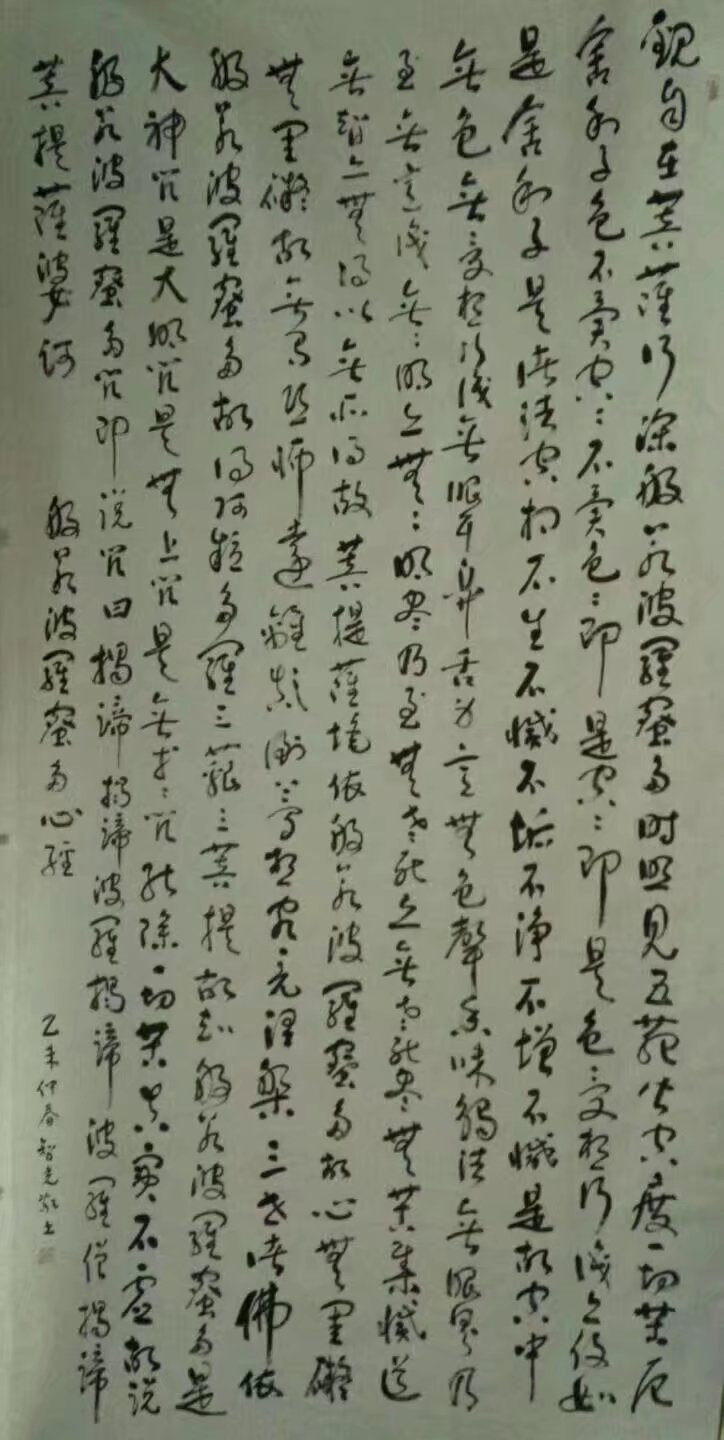 觀自在菩薩行深般若波羅蜜多時照見五蘊皆空度一切苦厄
舍利子色不異空〻不異色〻即是空〻即是色〻受想行識亦復如
是舍利子是諸法空相不生不滅不垢不淨不增不減是故空中
無色無受想行識無眼耳鼻舌身意無色聲香味觸法無眼界乃
至無意識無〻明亦無〻明盡乃至無老死亦無老死盡無苦集滅道
無智亦無得以無所得故菩提薩埵依般若波羅蜜多故心無罣礙
無罣礙故無有恐怖遠離顛倒夢想究竟涅槃三世諸佛依
般若波羅蜜多故得阿耨多羅三藐三菩提故知般若波羅蜜多是
大神咒是大明咒是無上咒是無等〻咒能除一切苦真實不虛故說
般若波羅蜜多咒即說咒曰揭諦揭諦波羅揭諦波羅僧揭諦
菩提薩婆訶
般若波羅蜜多心經
乙未仲春智光敬書